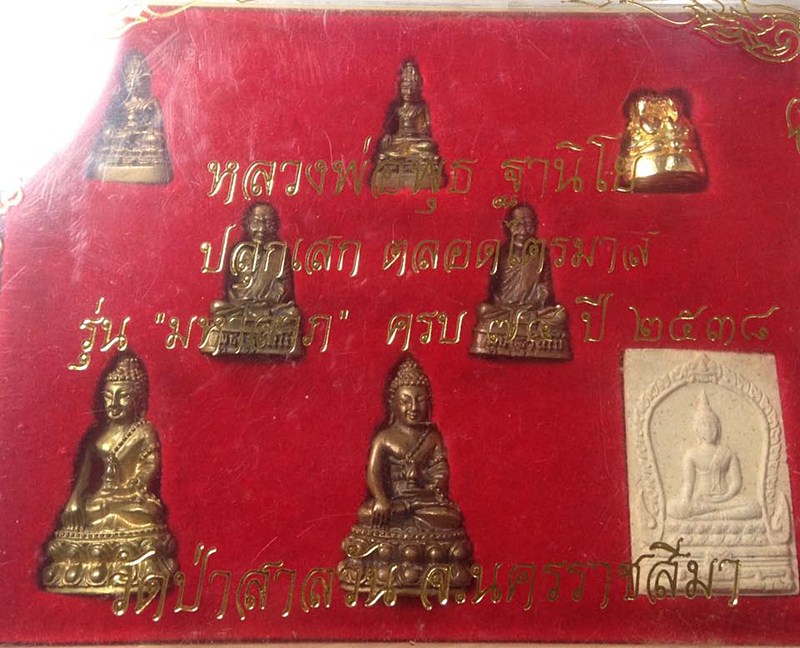 หลวงพ่อพุธ ฐานิโย
ปลุกเสก ตลอดไตรมาส
รุ่น "มหาลาภ" ครบ ๗๔ ปี ๒๕๓๘
วัดป่าสาลวัน จ.นครราชสีมา